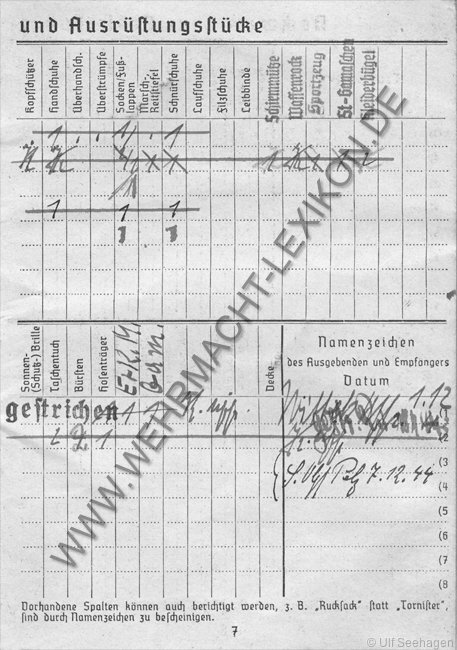 und Ausrüstungsstücke
Kopfschützer
Handschuhe
Überhandsch.
Überstrümpfe
Socken/Fuß-
lappen
Marsch-
Reitstiefel
Schnürschuhe
Laufschuhe
Filzschuhe
Leibbinde
Schirmmütze
Waffenrock
Sportzeug
St-Gamaschen
Kleiderbügel
1 1 1
1 1 1
1 1
Sonnen-
(Schutz-) Brille
Taschentuch
Bürsten
Hosenträger
Decke
Namenzeichen
des Ausgebenden und Empfängers
Datum
gestrichen
1.12
(2
2 2 1
(3
7.12.44
(4
(5
(6
(7
(8
Vorhandene Spalten können auch berichtigt werden, z. B. „Rucksack" statt „Tornister",
sind durch Namenzeichen zu bescheinigen.
7
WWW.WEHRMACHT-LEXIKON.DE
© Ulf Seehagen